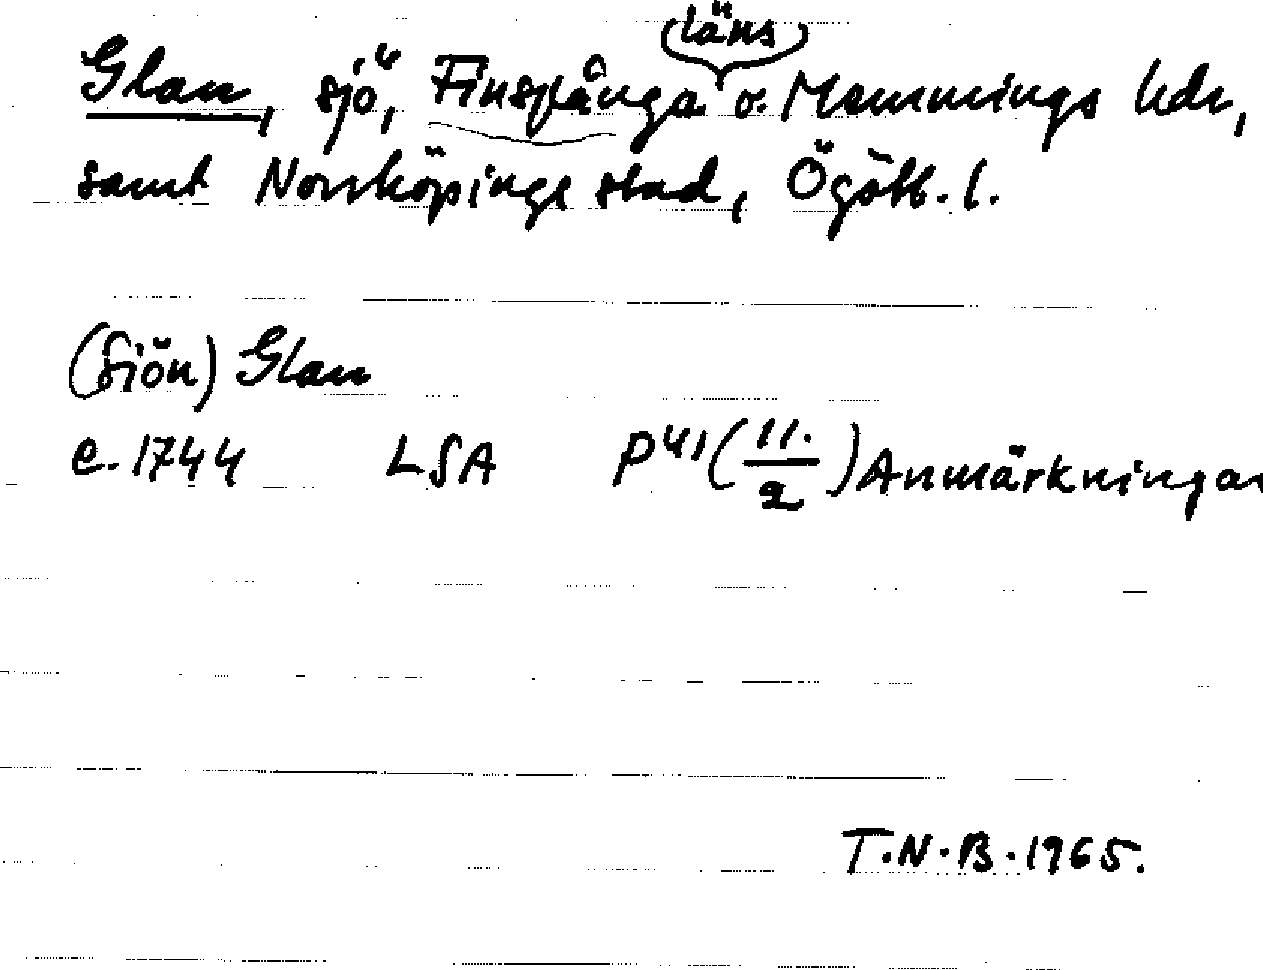 Glan, sjö, Finspånga läns o. Memmings hdr,
samt Norrköpings stad, Ögötl. l.
(Siön) Glan
c. 1744 LSA P41 (11./2) Anmärkningar
T.N.B. 1965.